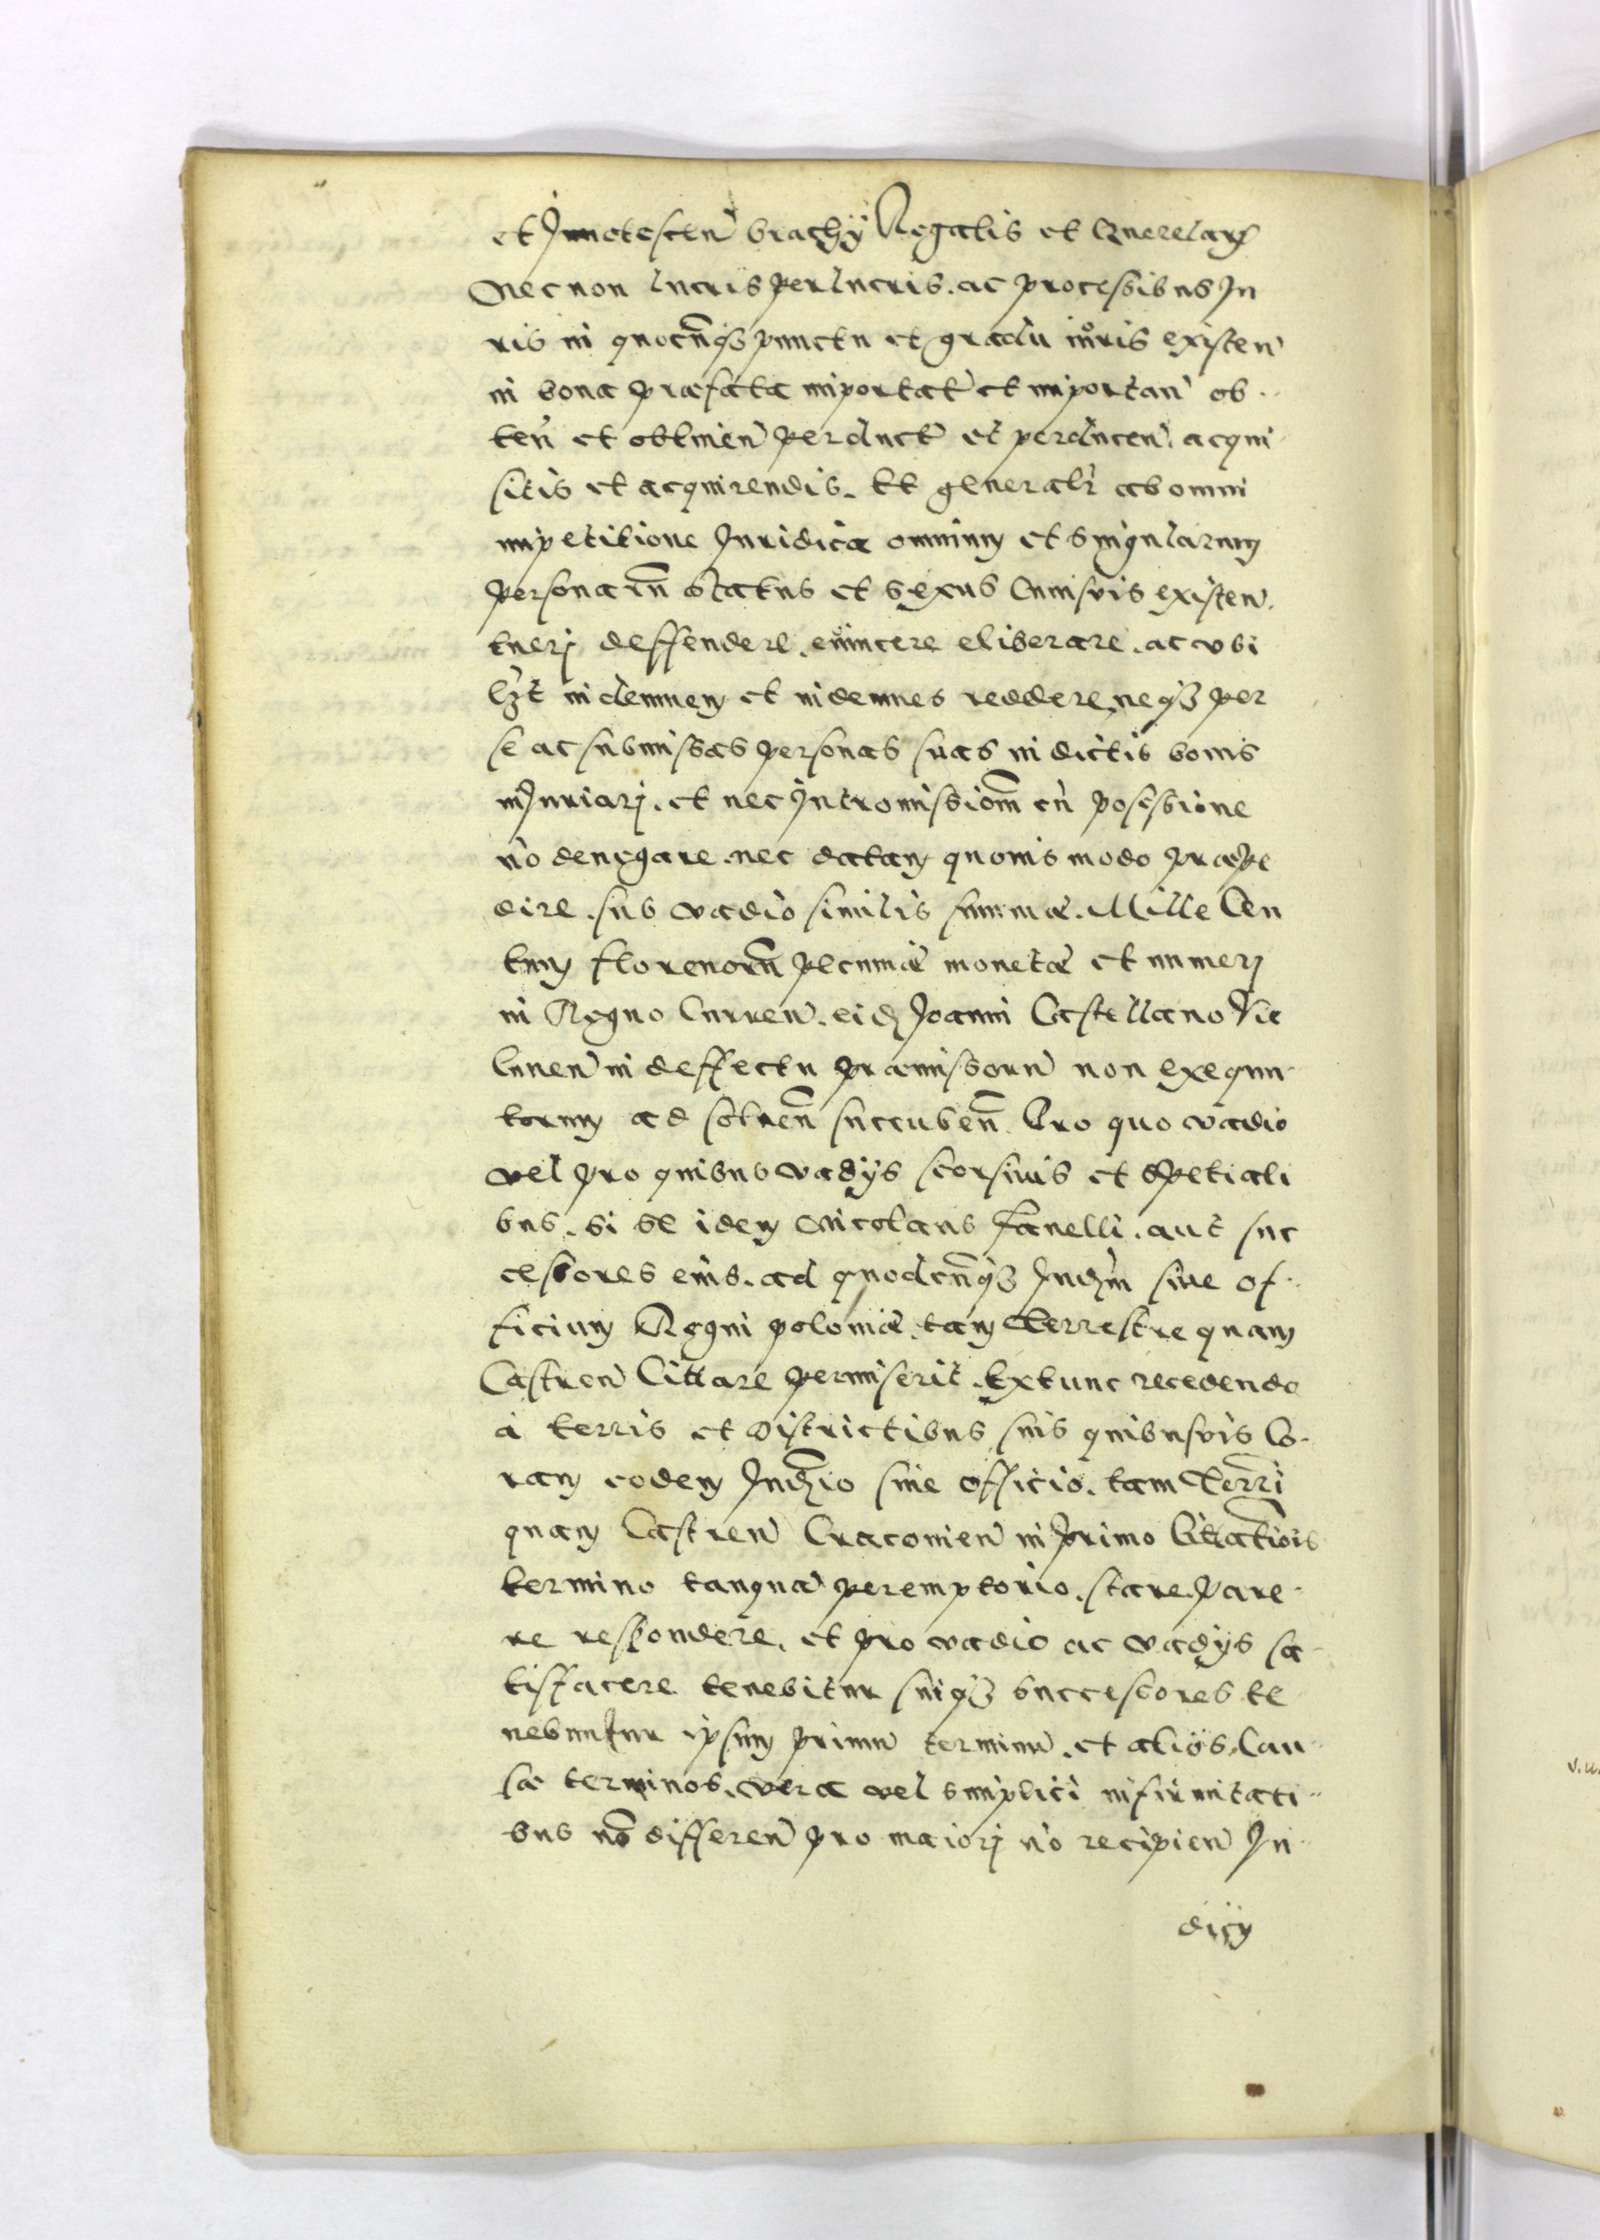 et Innotescen̄ brachÿ Regalis et Querelarꝝ
Nec non lucris perlucris. ac processibus Iu
ris in quocūqꝫ punctu et gradu iuris existen̄
in bona præfata importat̄ et importan̄ ob-
ten̄ et obtinen̄ perduct̄ et perducen̄ acqui
sitis et acquirendis. Et generalr̄ ab omni
impetitione Iuridica omnium et singularum
personarū status et sexus Cuiusvis existen̄.
tuerj deffendere. evincere eliberare. ac ubi
lꝫt indemnem et indemnes reddere, neqꝫ per
se ac submissas personas suas in dictis bonis
inIuriarj. et nec Intromissiom̄ cū posessione
n̄o denegare. nec datam quovis modo præpe
dire. sub vadio similis summæ. Mille Cen
tum florenorū pecuniæ monetæ et numerj
in Regno Curren̄. eidꝫ Joanni Castellano Vis
licien̄ in deffectu præmissorū non exequu-
torum ad solven̄ succuben̄ Pro quo vadio
vel pro quibus vadÿs seorsivis et spetiali
bus. si se idem Nicolaus Fanelli. aut suc
cessores eius. ad quodcūqꝫ Iudꝫm̄ sive of-
ficium Regni poloniæ. tam Terrestre quam
Castren̄ Cittare permiserit. Extunc recedendo
à terris et Districtibus suis quibusvis Co-
ram eodem Iudꝫio sive officio. tam Terrī
quam Castren̄ Cracovien̄ in primo Cittatiōis
termino tanquā peremptorio. stare. pare-
re respondere. et pro vadio ac vadÿs sa-
tisfacere tenebitur suiqꝫ successores te
nebuntur ipsum primū terminū. et alios Cau-
sæ terminos. vera vel simplici infirmitati-
bus nō differen̄ pro maiorj n̄o recipien̄ Iu-
dicÿ